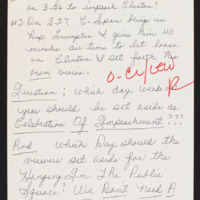 on 3-26 to impeach Clinton!
#2 On 3-27 C-Span bring in
Rep Livingston & gives him 40
minutes air time to let loose
on Clinton & set forth his
own views.
Question: Which day week
you should be set aside as
Celebration Of Impeachment???
And Which Day should the
viewers set aside for the
Hanging In The Public
Square? We Dont Need A